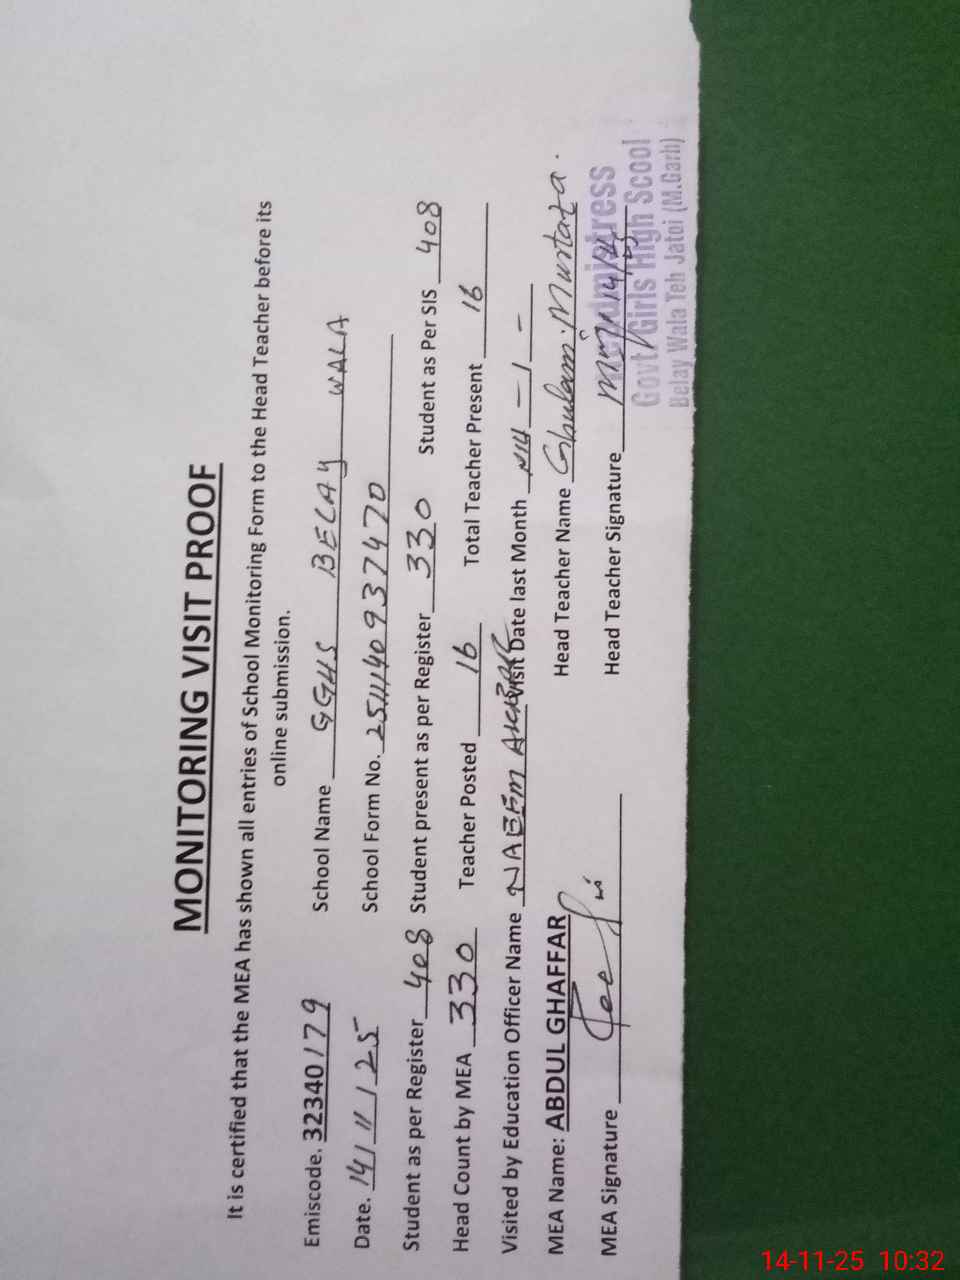 MONITORING VISIT PROOF
It is certified that the MEA has shown all entries of School Monitoring Form to the Head Teacher before its
online submission.
Emiscode. 32340179 School Name GGHS BELAY WALA
Date. 14/11/25 School Form No. 2511140937470
Student as per Register 408 Student present as per Register 330 Student as Per SIS 408
Head Count by MEA 330 Teacher Posted 16 Total Teacher Present 16
Visited by Education Officer Name NAEEM AKHTAR Visit Date last Month
MEA Name: ABDUL GHAFFAR Head Teacher Name Ghulam Murtaza.
MEA Signature Head Teacher Signature 14/11/25
Headmistress
Govt. Girls High Scool
Belay Wala Teh Jatoi (M.Garh)
14-11-25 10:32